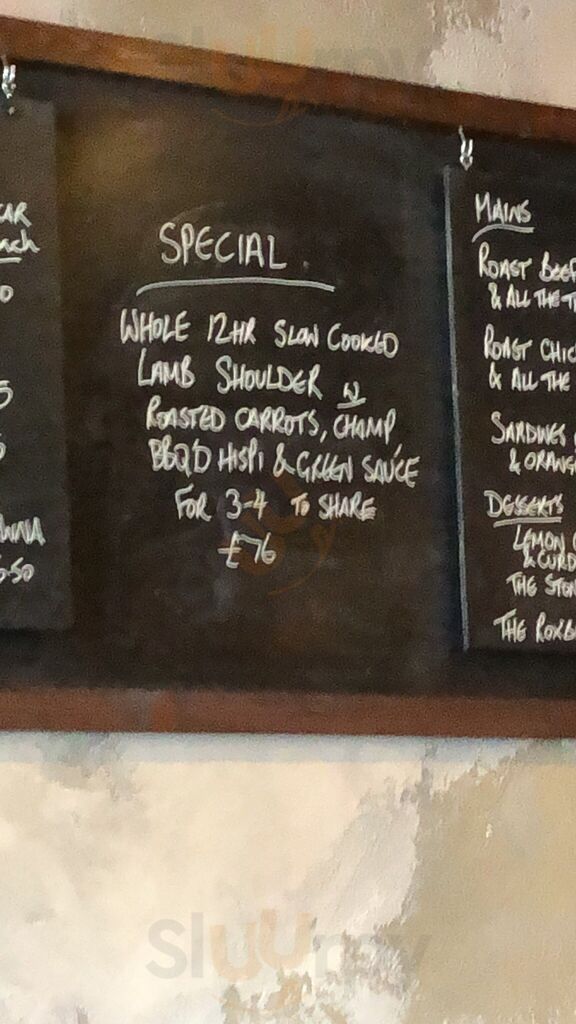 SPECIAL
WHOLE 12HR SLOW COOKED
LAMB SHOULDER W
ROASTED CARROTS, CHAMP
BBQ'D HISPI & GREEN SAUCE
FOR 3-4 TO SHARE
£76
MAINS
ROAST BEEF
& ALL THE T
ROAST CHIC
& ALL THE
SARDINES
& ORANG
DESSERTS
LEMON
& CURD
THE STON
THE ROXB
Sluurpy